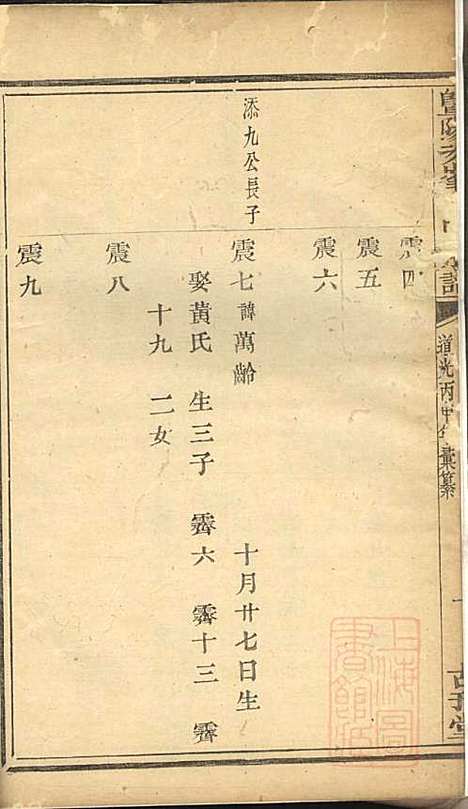 道光丙申年彙纂
震四
震五
震六
添九公長子
震七 諱萬齡 十月廿七日生
娶黃氏 生三子 霽六 霽十三 霽
十九 二女
震八
震九
上海圖書館藏